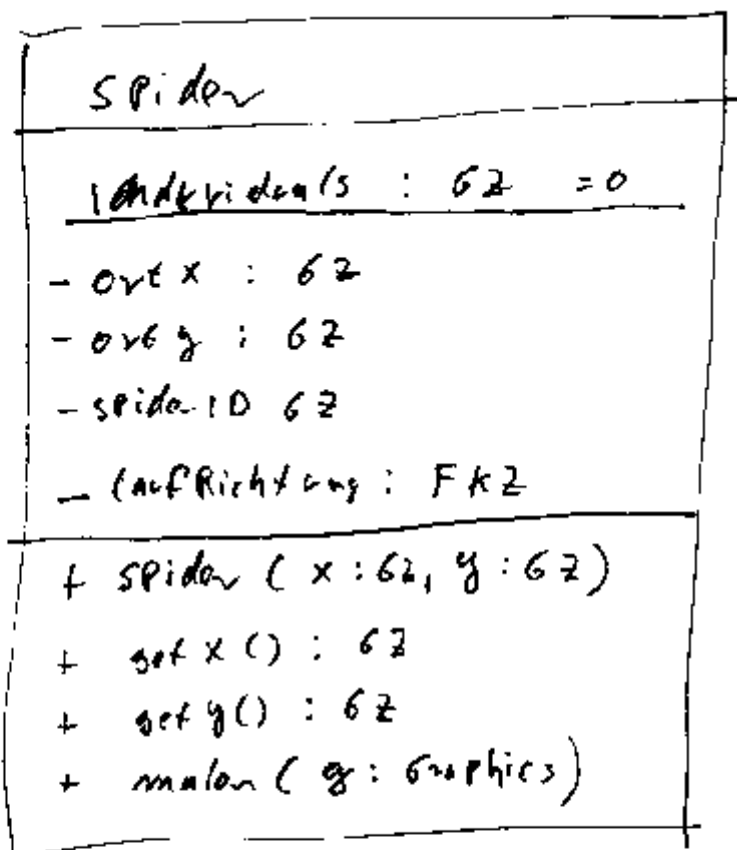 Spider
: GZ = 0
- ortx : GZ
- orty : GZ
- spiderID GZ
- laufRichtung : FKZ
+ Spider ( x : GZ, y : GZ )
+ getx () : GZ
+ gety() : GZ
+ malen ( g : Graphics )